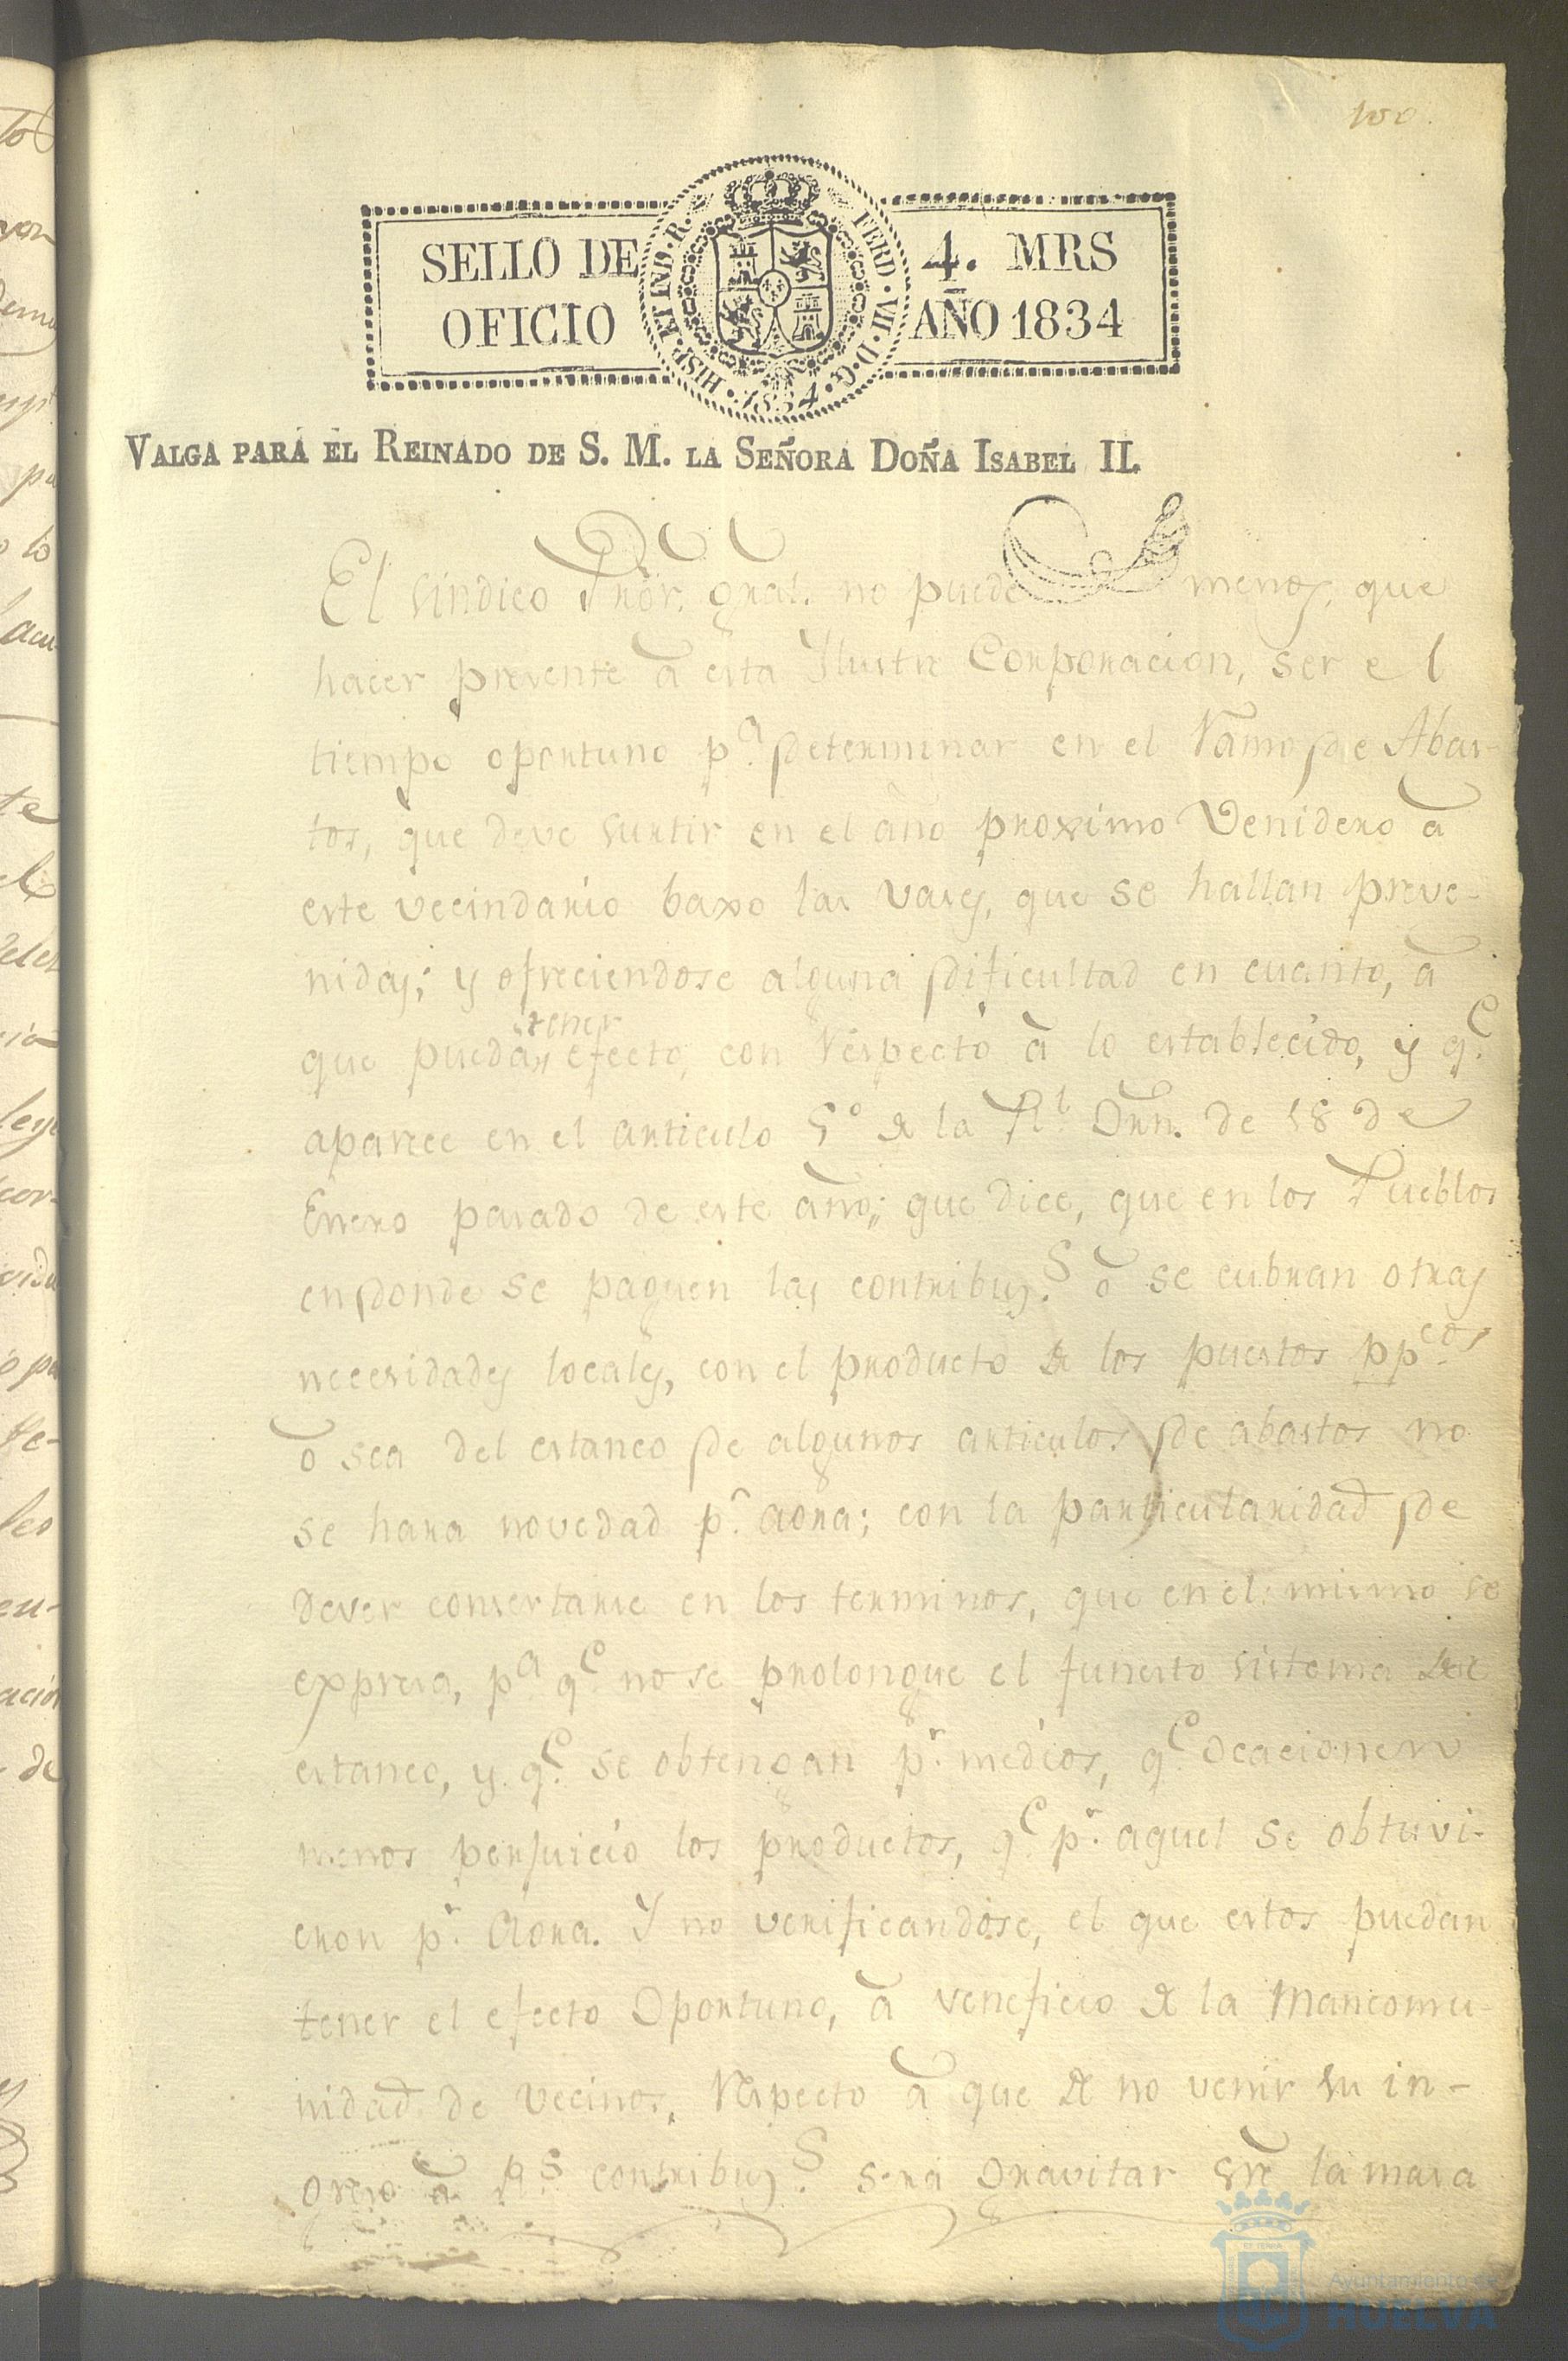 100.
SELLO DE 4. MRS
OFICIO AÑO 1834
HISP. ET IND. R. FERD. VII. D. G. 1834
VALGA PARA EL REINADO DE S. M. LA SEÑORA DOÑA ISABEL II.
El sindico Pror. gral. no puede menos, que
hacer presente à esta Ylustre Corporacion, ser el
tiempo oportuno pa. determinar en el Ramo de Abas-
tos, que deve surtir en el año proximo Venidero à
este vecindario baxo las vases, que se hallan preve-
nidas; y ofreciendose alguna dificultad en cuanto, à
que puedan tener efecto, con respecto à lo establecido, y qe.
aparece en el articulo 5º de la Rl. Orn. de 18 de
Enero pasado de este año; que dice, que en los Pueblos
en donde se paguen las contribus. ò se cubran otras
necesidades locales, con el producto de los puestos ppcos.
ò sea del estanco de algunos articulos de abastos no
se hara novedad pr. aora; con la particularidad de
dever consertarse en los terminos, que en el mismo se
expresa, pa. qe. no se prolongue el funesto sistema de
estanco, y qe. se obtengan pr. medios, qe. ocacionen
menos perjuicio los productos, qe. pr. aquel se obtuvi-
eron pr. Aora. Y no verificandose, el que estos puedan
tener el efecto Oportuno, à veneficio de la Mancomu-
nidad de Vecinos, Respecto à que de no venir su in-
greso à Rs. contribus. sera Gravitar sre la masa
Ayuntamiento de
HUELVA